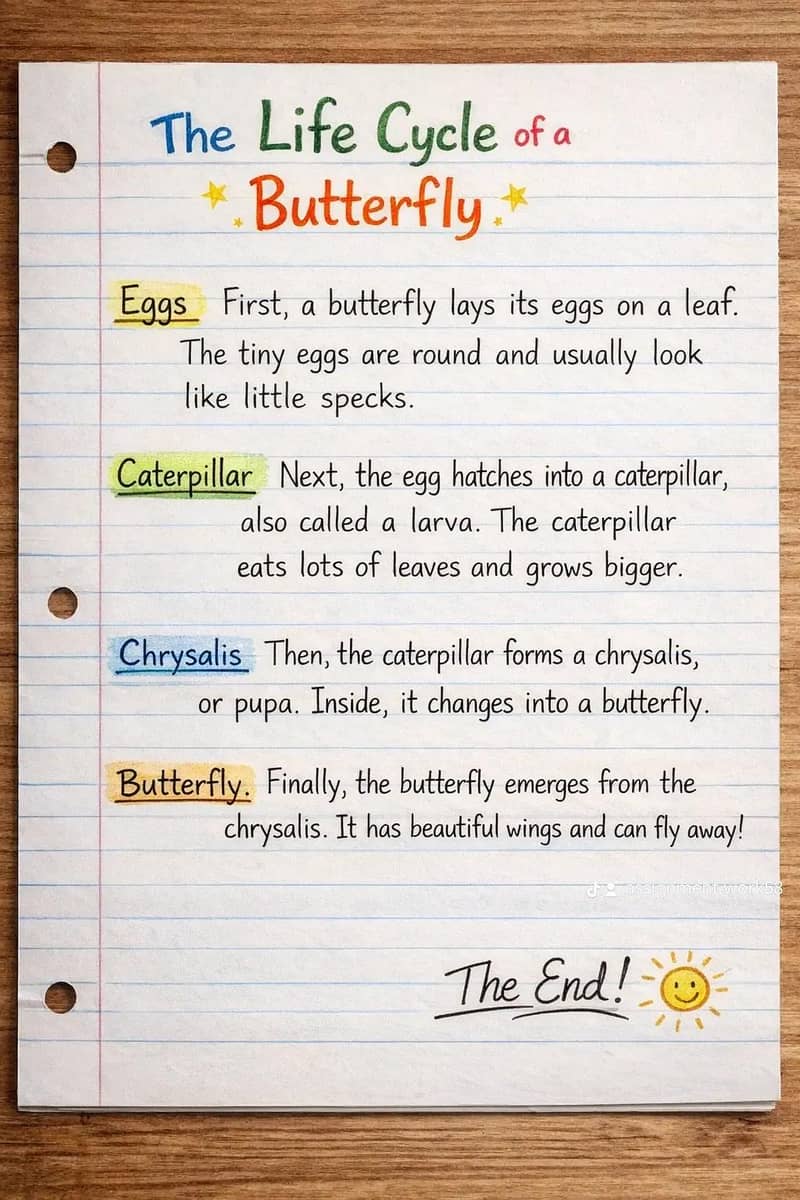 The Life Cycle of a
Butterfly
Eggs First, a butterfly lays its eggs on a leaf.
The tiny eggs are round and usually look
like little specks.
Caterpillar Next, the egg hatches into a caterpillar,
also called a larva. The caterpillar
eats lots of leaves and grows bigger.
Chrysalis Then, the caterpillar forms a chrysalis,
or pupa. Inside, it changes into a butterfly.
Butterfly. Finally, the butterfly emerges from the
chrysalis. It has beautiful wings and can fly away!
assignment.work53
The End!